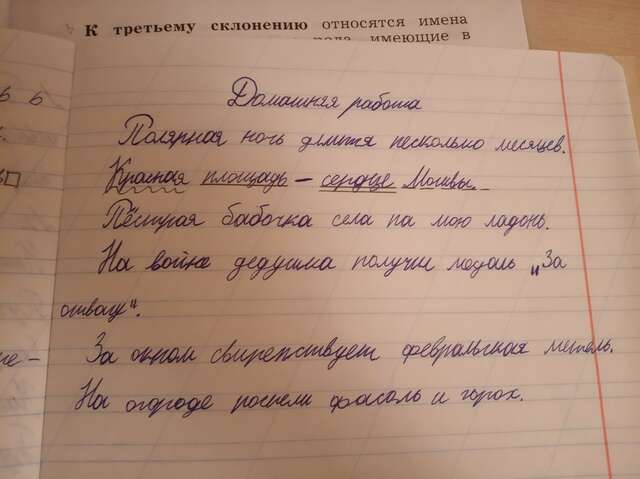 К третьему склонению относятся имена
рода, имеющие в
Домашняя работа
Полярная ночь длится несколько месяцев.
Красная площадь – сердце Москвы.
Пёстрая бабочка села на мою ладонь.
На войне дедушка получил медаль „За
отвагу“.
За окном свирепствует февральская метель.
На огороде поспели фасоль и горох.